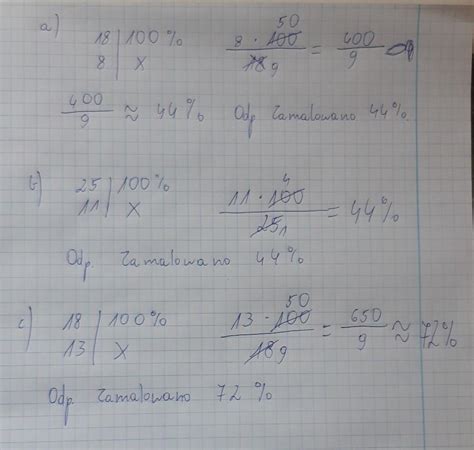 a)
18 | 100 % 8 · 100 50 / 18 9 = 400/9
8 | x
400/9 ≈ 44% Odp. Zamalowano 44%.
b)
25 | 100 % 11 · 100 4 / 25 1 = 44%
11 | x
Odp. Zamalowano 44%
c)
18 | 100% 13 · 100 50 / 18 9 = 650/9 ≈ 72%
13 | x
Odp. Zamalowano 72 %